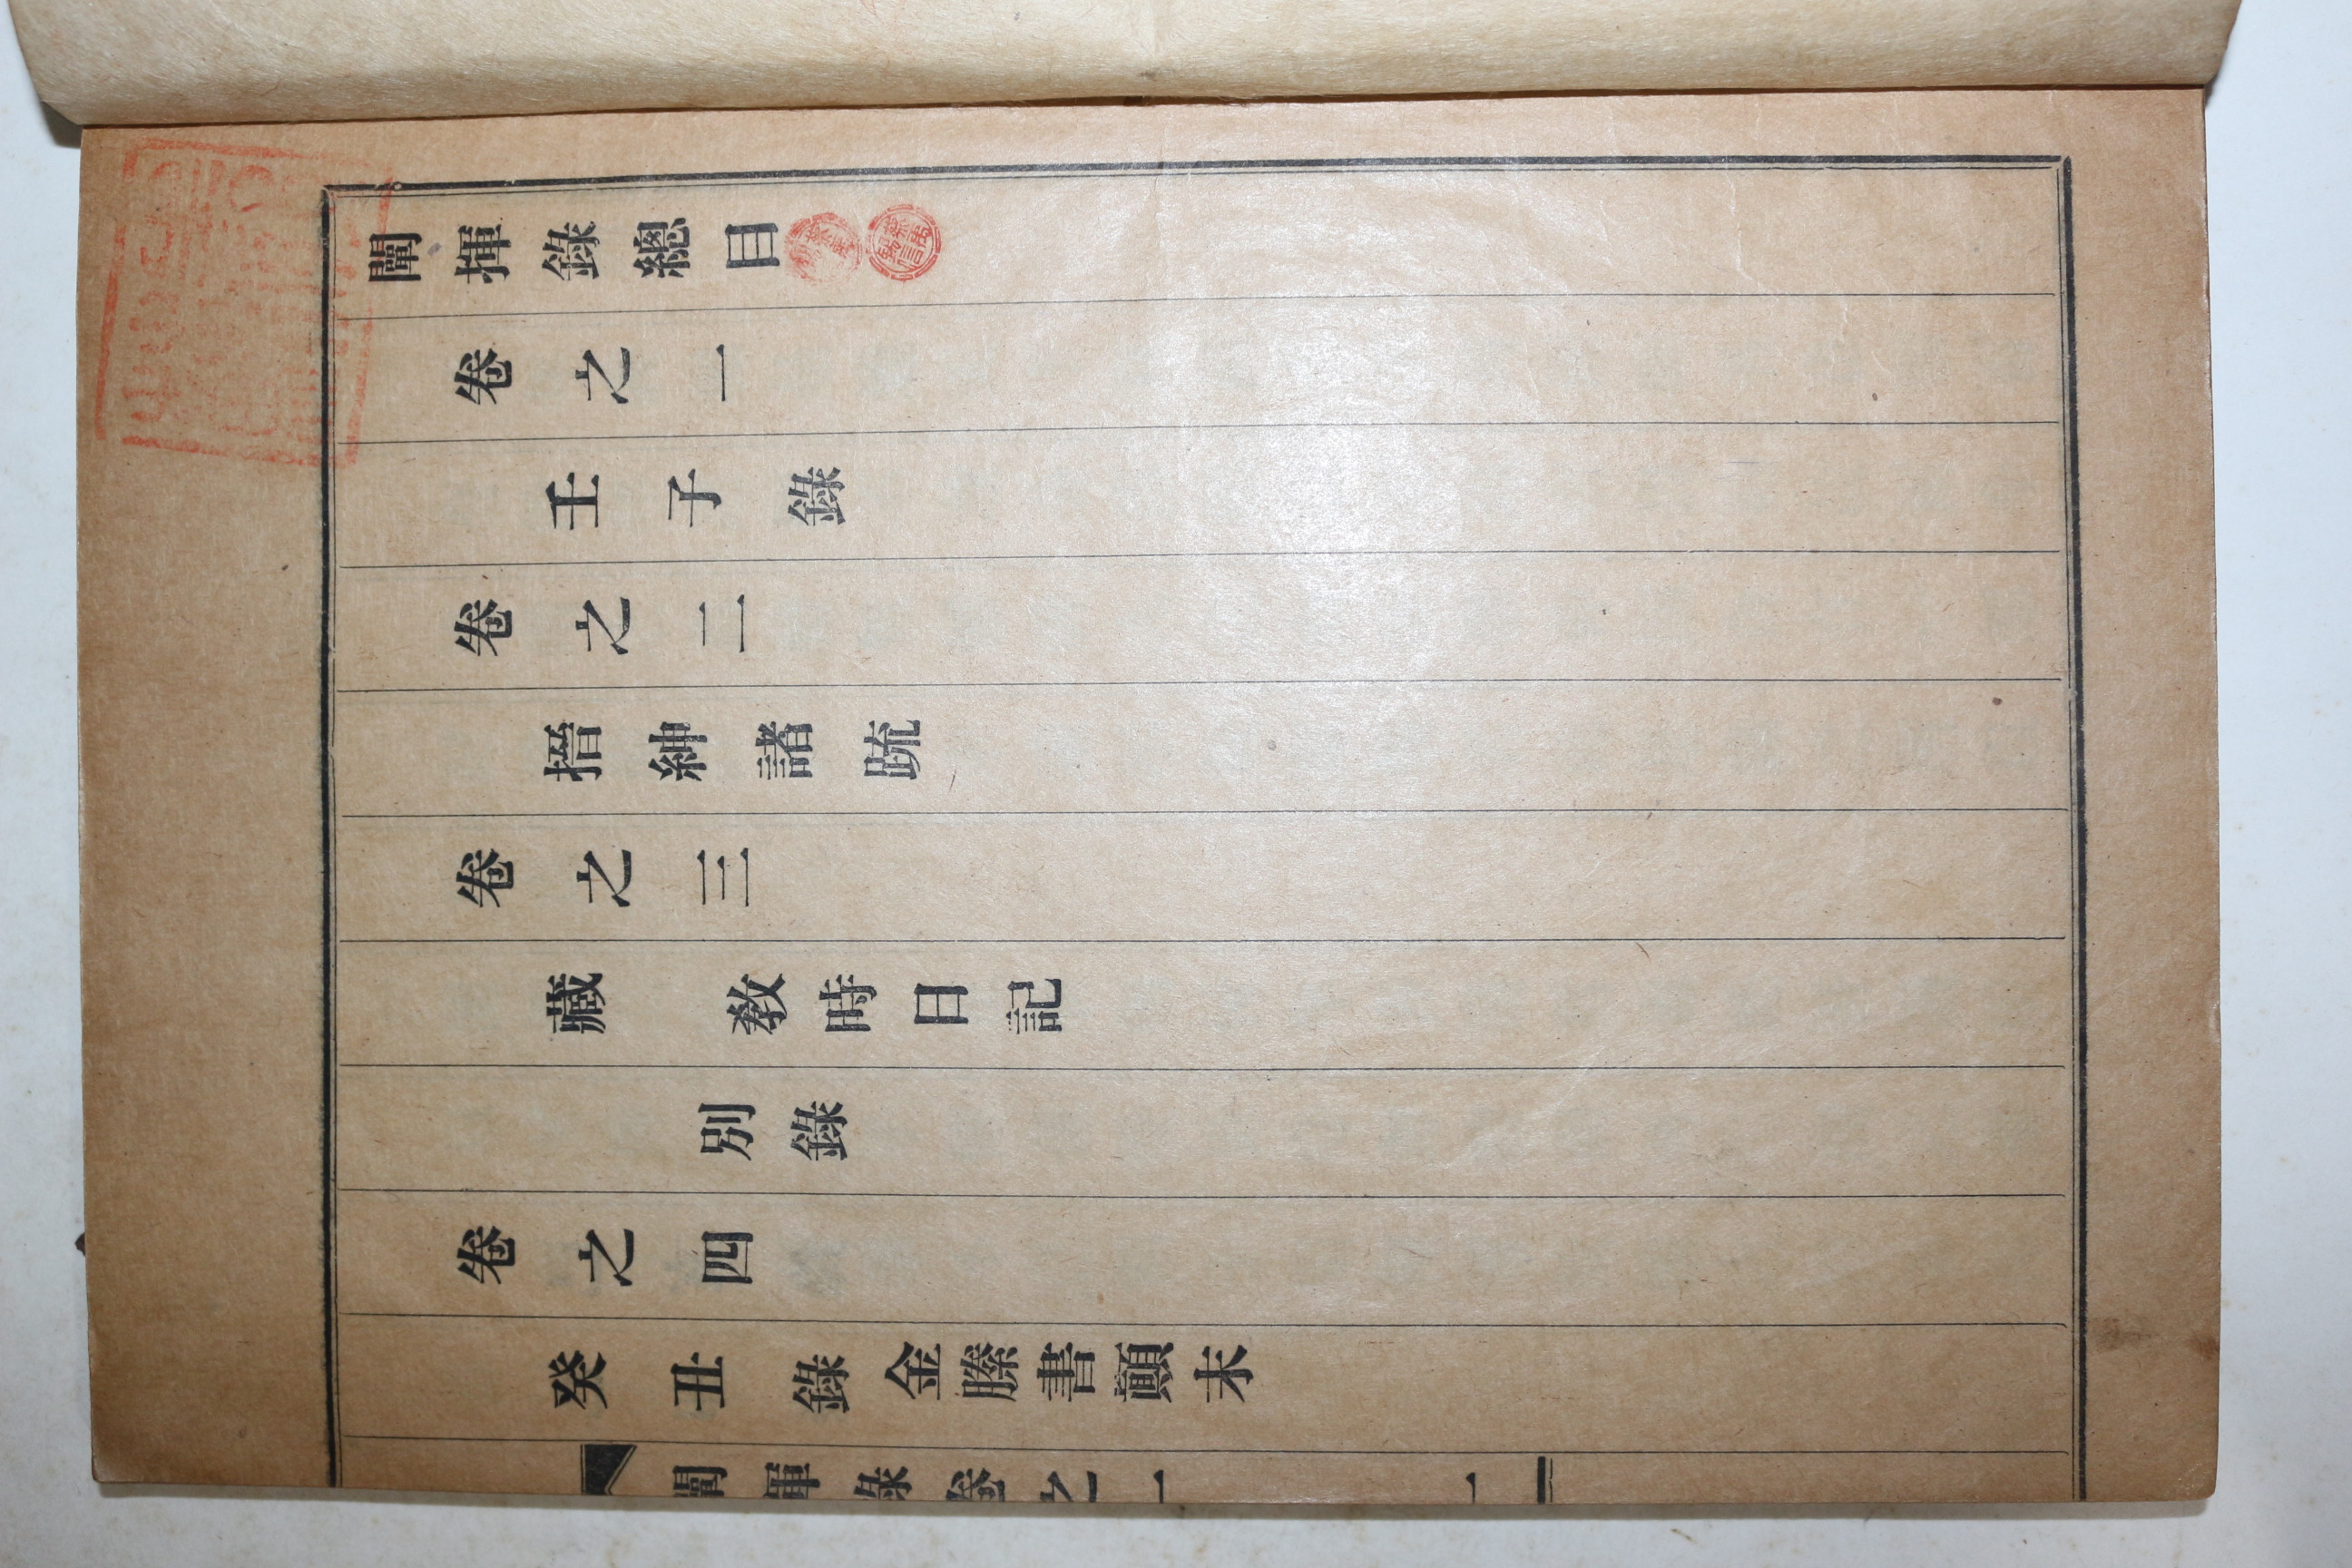 闡揮錄總目
卷之一
壬子錄
卷之二
搢紳諸䟽
卷之三
藏 教時日記
別錄
卷之四
癸丑錄 金縢書顚末
闡揮錄卷之一 一